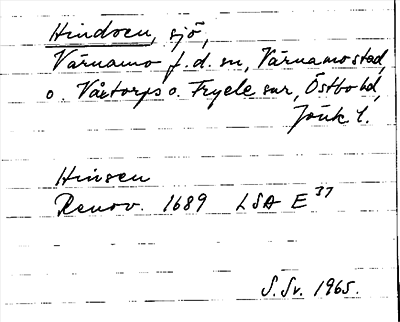 Hindsen, sjö,
Värnamo f.d. sn, Värnamo stad,
o. Våxtorps o. Fryele snr, Östbo hd,
Jönk l.
Hinsen
Renov. 1689 LSA E 37
S. Sv. 1965.